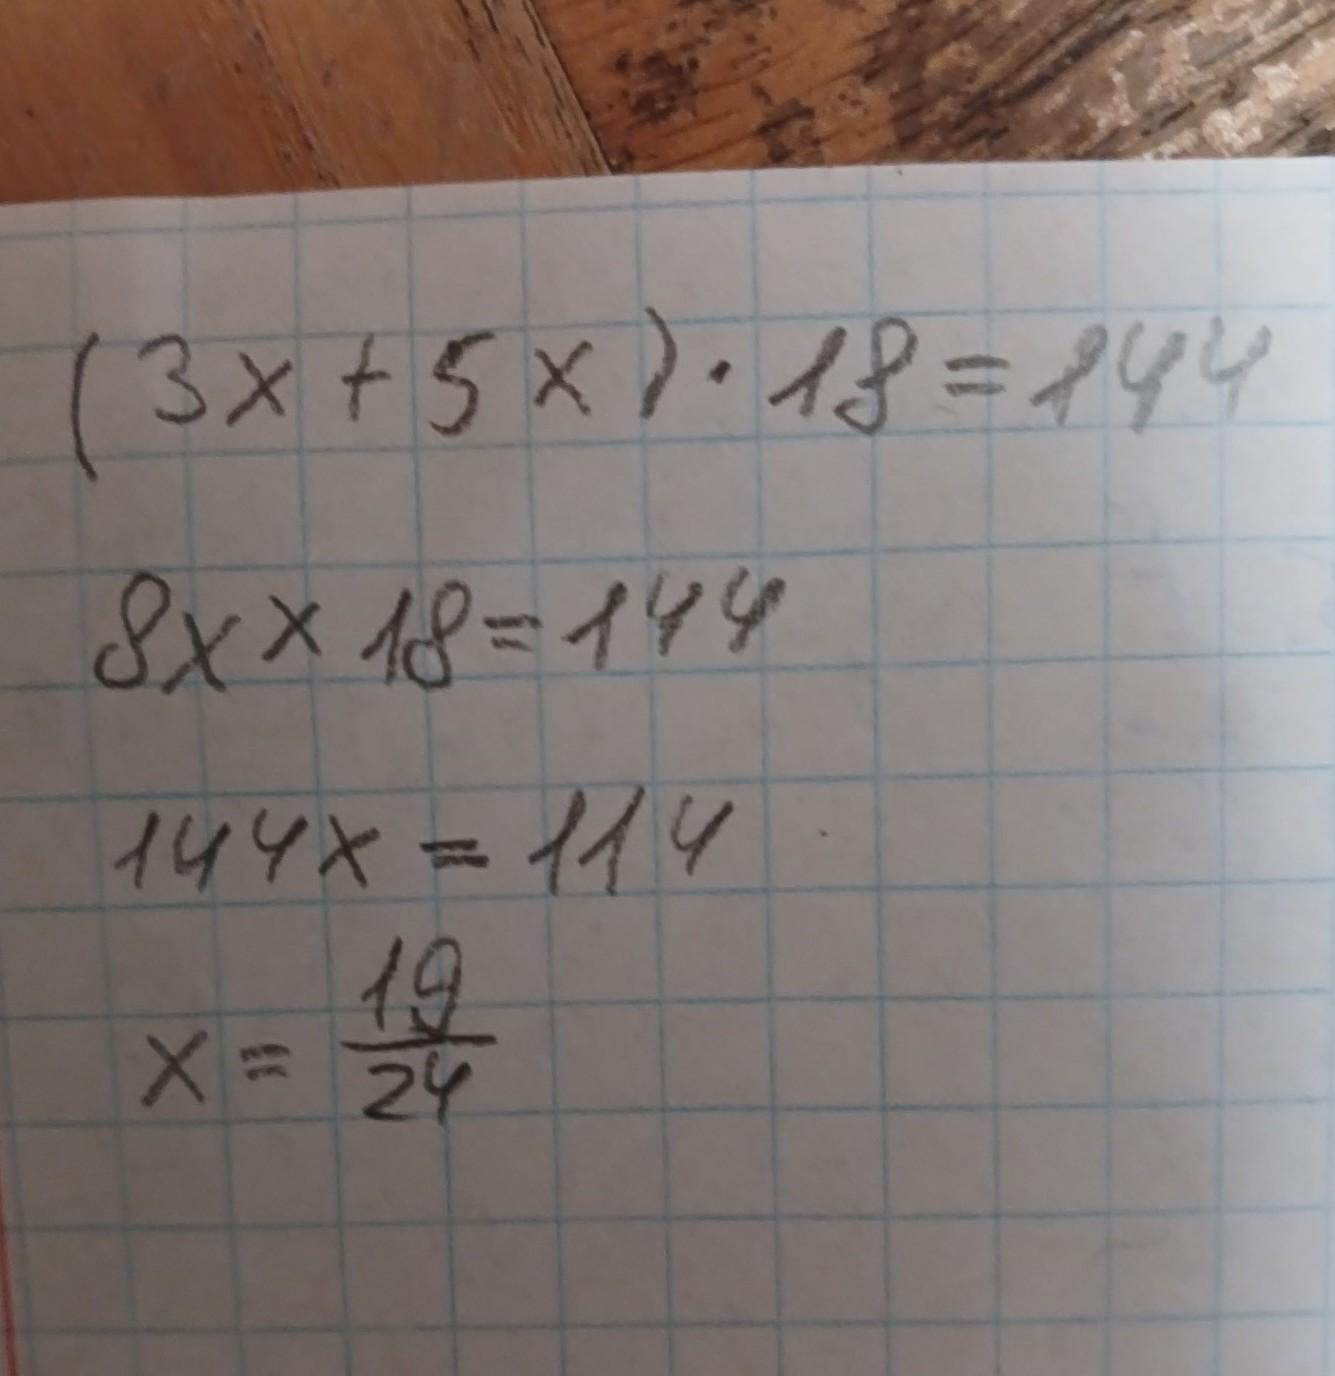 (3x+5x)·18=144
8x×18=144
144x=114
x=19/24